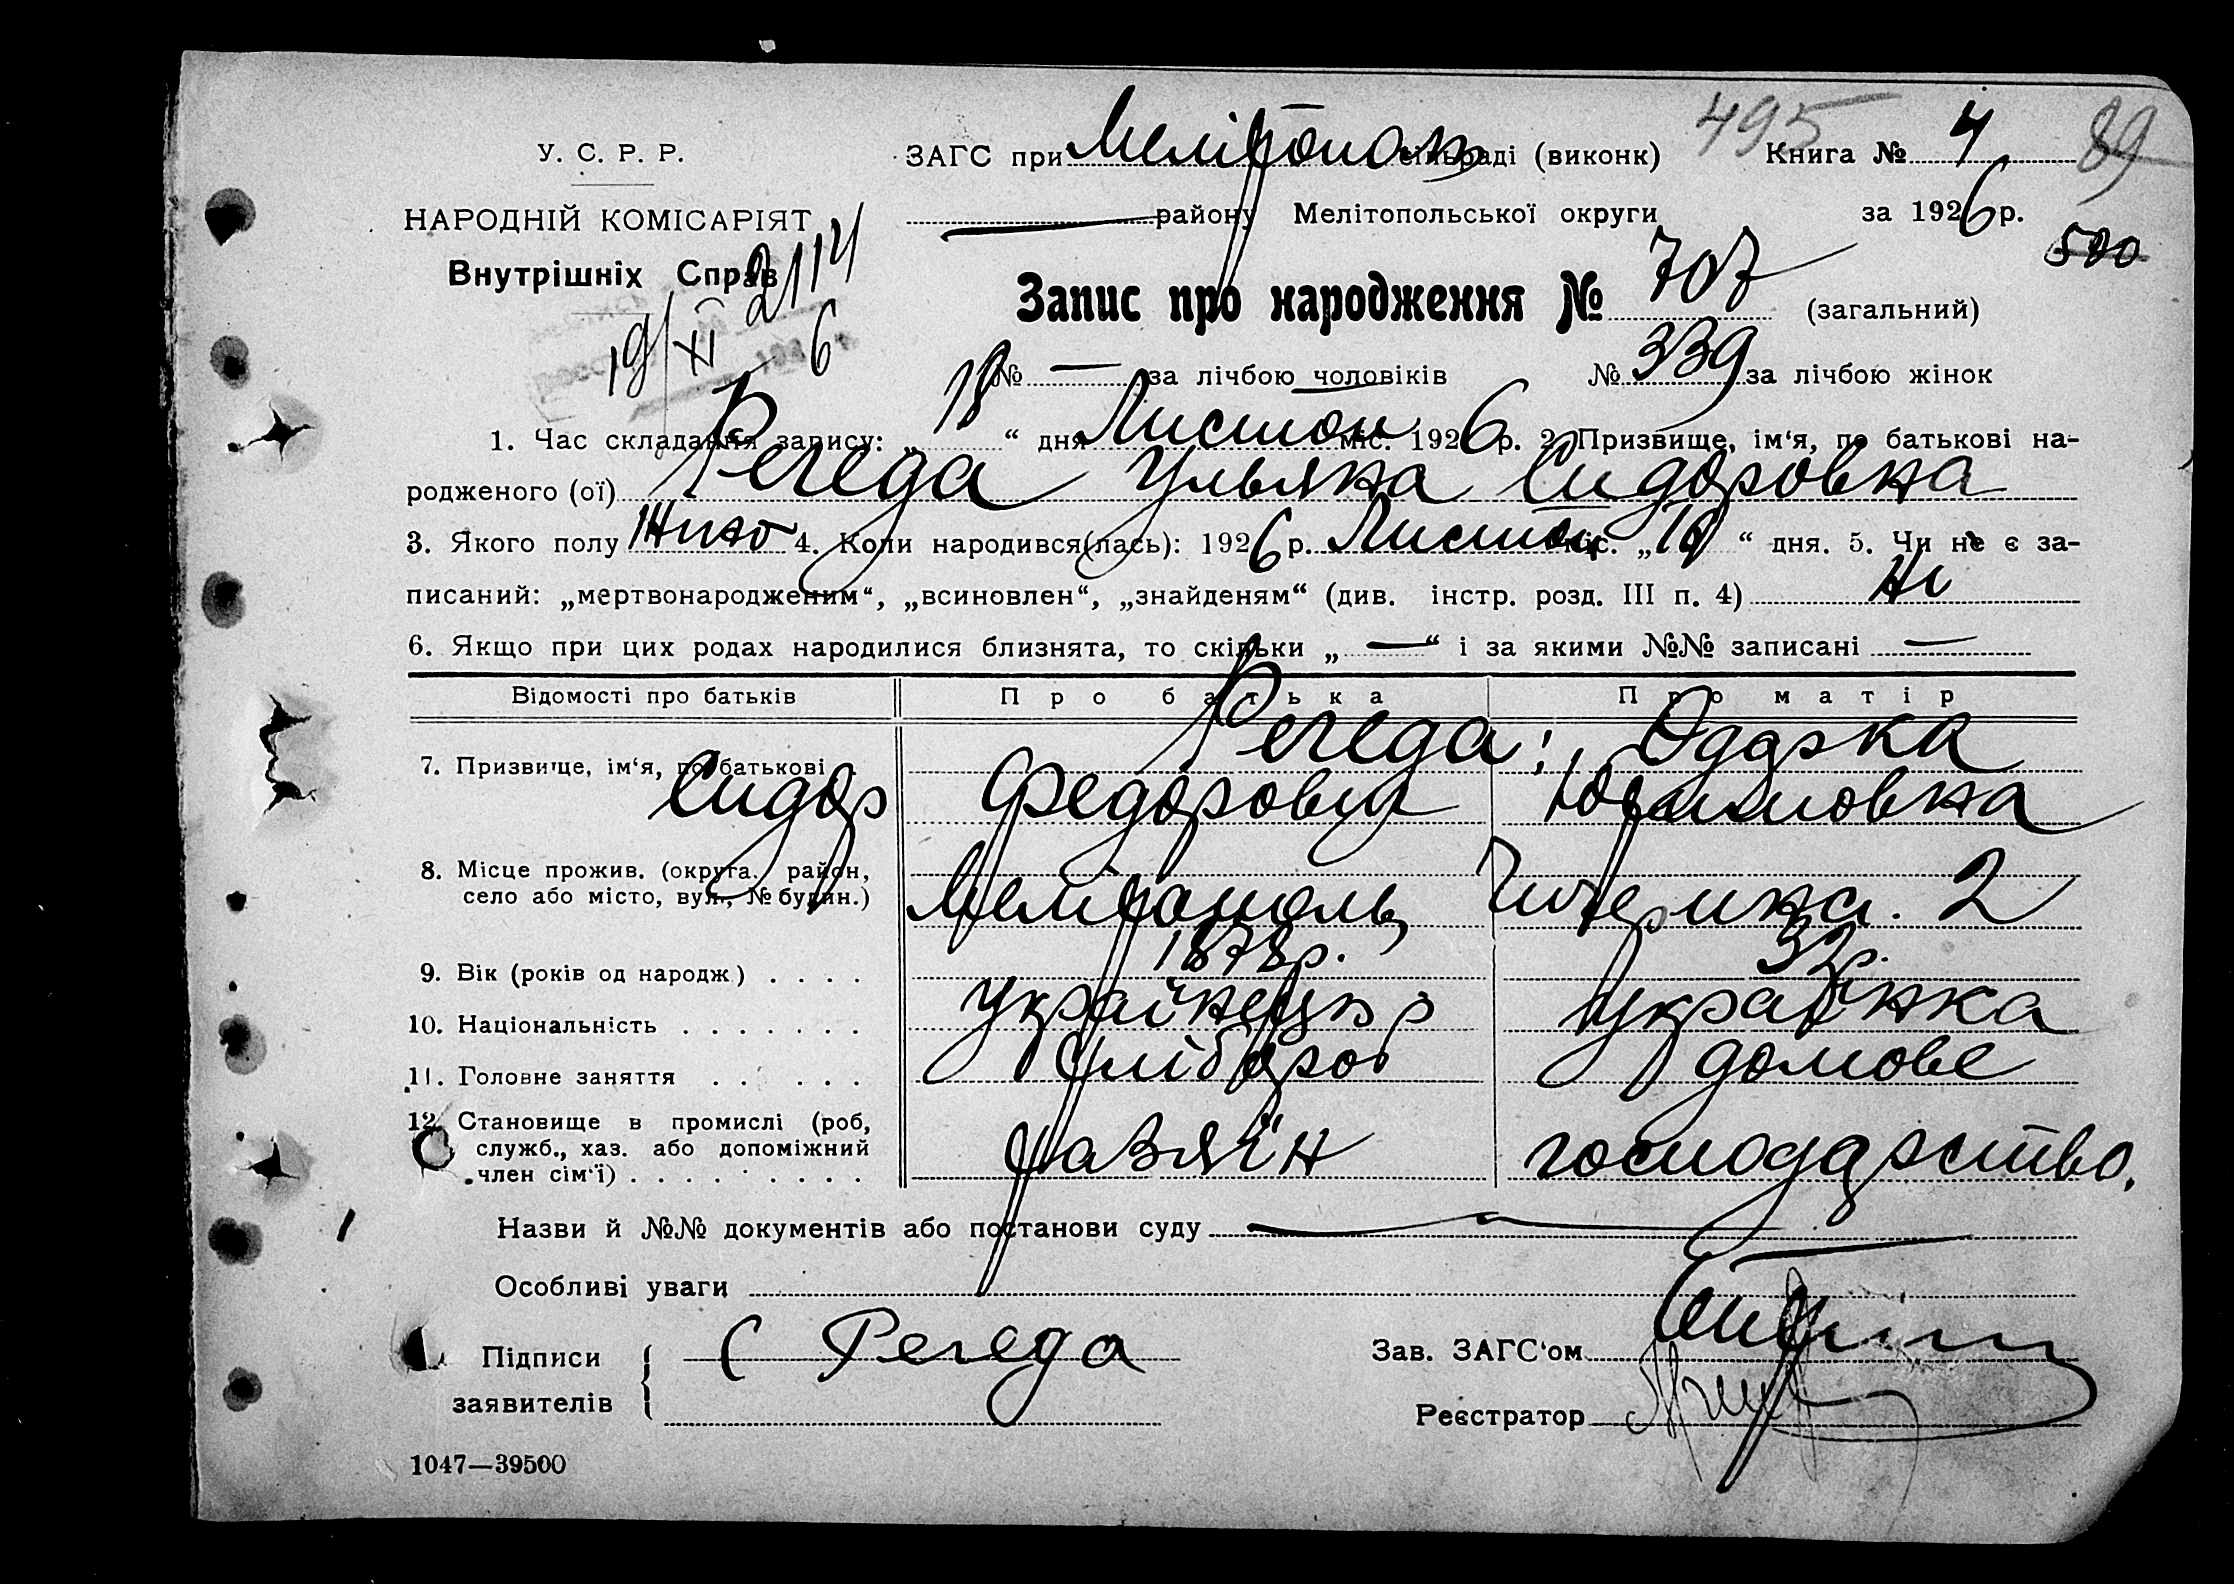 495
У. С. Р. Р. ЗАГС при Мелітополь сільраді (виконк) Книга № 4 89
НАРОДНІЙ КОМІСАРІЯТ району Мелітопольської округи за 1926 р.
500
Внутрішніх Справ 2114
Запис про народження № 707 (загальний)
19/XI 6
№ — за лічбою чоловіків № 339 за лічбою жінок
1. Час складання запису: „ 18 “ дня Листоп міс. 1926 р. 2. Призвище, ім‘я, по батькові на-
родженого (ої) Регеда Ульяна Сидоровна
3. Якого полу 4. Коли народився(лась): 1926 р. Листоп міс. „ “ дня. 5. Чи не є за-
писаний: „мертвонародженим“, „всиновлен“, „знайденям“ (див. інстр. розд. III п. 4) Ні
6. Якщо при цих родах народилися близнята, то скільки „ — “ і за якими №№ записані —
Відомості про батьків Про батька Про матір
7. Призвище, ім‘я, по батькові Регеда Одарка
Сидор Федорович
8. Місце прожив. (округа, район,
село або місто, вул., № будин.) Мелітополь 2
9. Вік (років од народж.) . . . . 1878 р. 32 р.
10. Національність . . . . . . . Українець Українка
11. Головне заняття . . . . . . Хлібороб домове
12. Становище в промислі (роб,
служб., хаз. або допоміжний
член сім‘ї) . . . . . . . . хазяїн господарство.
Назви й №№ документів або постанови суду —
Особливі уваги
Підписи С Регеда Зав. ЗАГС‘ом
заявителів Реєстратор
1047—39500